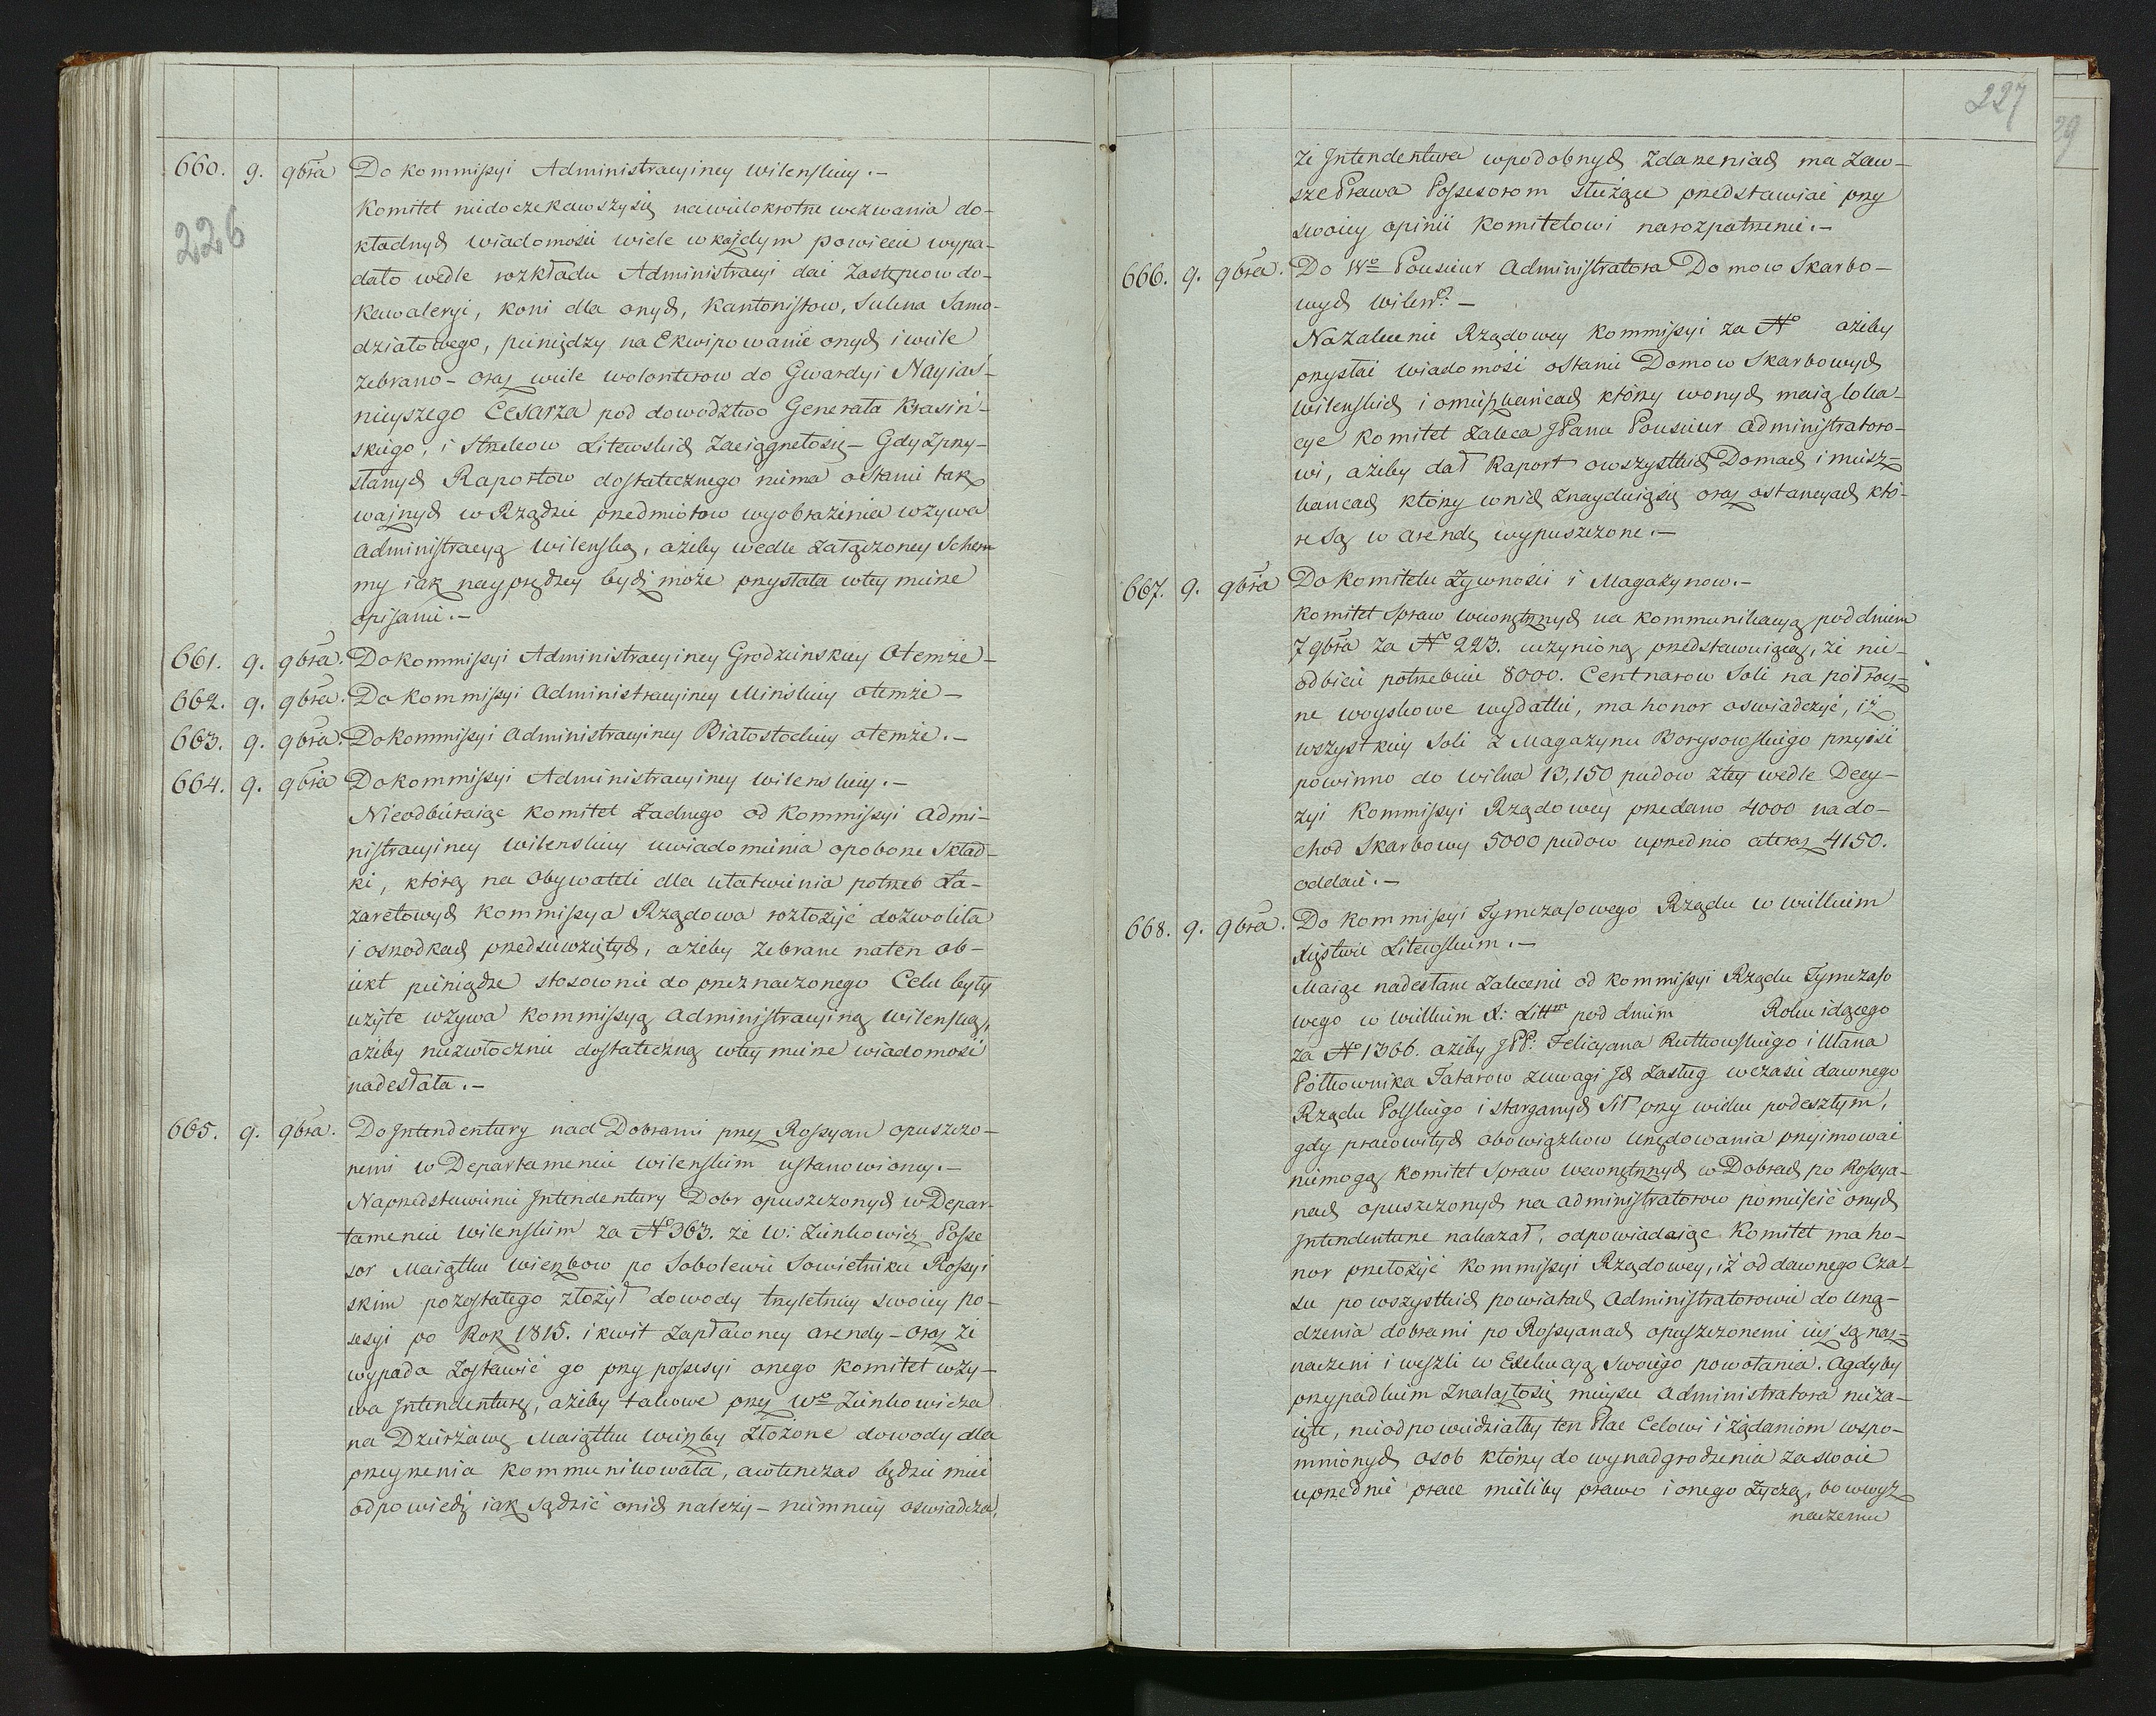 660. 9. 9bra Do Kommissyi Administracyiney Wilenskiey.–
226
Komitet niedoczekawszysię nawielokrotne wezwania do-
kładnych wiadomości wiele wkażdym powiecie wypa-
dało wedle rozkładu Administracyi dać Zastępcow do-
Kawaleryi, koni dla onych, Kantonistow, Sukna Samo-
działowego, pieniędzy na Ekwipowanie onych i wiele
zebrano – oraz wiele wolonterow do Gwardyi Nayiaś-
nieyszego Cesarza pod dowodztwo Generała Krasiń-
skiego, i Strzelcow Litewskich Zaciągnęłosię – Gdy zprzy-
słanych Raportow dostatecznego niema ostanie tak
ważnych w Rządzie przedmiotow wyobrażenia wzywa
Administracyą Wilenską, ażeby wedle załączoney Schem
my iak nayprędzey bydź może przysłała wtey mierze
opisanie.–
661. 9. 9bra. Do Kommissyi Administracyiney Grodzienskiey Otemże –
662. 9. 9bra. Do Kommissyi Administracyiney Minskiey otemże –
663. 9. 9bra. Do Kommissyi Administracyiney Białostockiey otemże.–
664. 9. 9bra Do Kommissyi Administracyiney Wilenskiey.–
Nieodbieraiąc Komitet żadnego od Kommissyi Admi-
nistracyiney Wilenskiey uwiadomienia opoborze Skład-
ki, którą na Obywateli dla ułatwienia potrzeb La-
zaretowych Kommissya Rządowa rozłożyć dozwoliła
i osrzodkach przedsięwziętych, ażeby zebrane naten ob-
iekt pieniądze stosownie do przeznaczonego Celu były
użyte wzywa Kommissyą Administracyiną Wilenską,
ażeby niezwłocznie dostateczną wtey mierze wiadomość
nadesłała.–
665. 9. 9bra. Do Intendentury nad Dobrami przez Rossyan opuszczo-
nemi w Departamencie Wilenskim ustanowioney.–
Naprzedstawienie Intendentury Dobr opuszczonych w Depar-
tamencie Wilenskim za N° 363. że W: Zienkowicz Posse
sor Maiątku Wierzbow po Sobolewie Sowietniku Rossyi
skim pozostałego złożył dowody trzyletniey swoiey po-
sesyi po Rok 1815. i kwit Zapłaconey arendy – oraz że
wypada Zostawić go przy possesyi onego Komitet wzy-
wa Intendenturę, ażeby takowe przez W° Zienkowicza
na Dzierżawę Maiątku Wierzby złożone dowody dla
przeyrzenia kommunikowała, awtenczas będzie mieć
odpowiedź iak sądzić onich należy – niemniey oswiadcza,
227
29
że Intendentura wpodobnych zdarzeniach ma zaw-
sze Prawa Possesorom służące przedstawiać przy
swoiey opinii Komitetowi narozpatrzenie.–
666. 9. 9bra. Do W° Pousieur Administratora Domow Skarbo-
wych Wilen.–
Nazalecenie Rządowey Kommissyi za N° ażeby
przysłać wiadomość ostanie Domow Skarbowych
Wilenskich i omieszkańcach którzy wonych maią loka-
cye Komitet Zaleca JPanu Pousieur Administratoro-
wi, ażeby dał Raport owszystkich Domach i miesz-
kańcach którzy wnich Znayduiąsię oraz ostancyach któ-
re są w arendę wypuszczone.–
667. 9. 9bra Do Komitetu Żywności i Magazynow.–
Komitet Spraw Wewnętrznych na kommunikacyą pod dniem
7 9bra za N° 223. uczynioną przedstawuiącą, że nie-
odbicie potrzebuie 8000. Centnarow Soli na potrocz-
ne woyskowe wydatki, ma honor oswiadczyć, iż
wszystkiey Soli z Magazynu Borysowskiego przyiść
powinno do Wilna 13,150 pudow ztey wedle Decy-
zyi Kommissyi Rządowey przedano 4000 nado-
chod Skarbowy 5000 pudow uprzednio ateraz 4150.
oddaie.–
668. 9. 9bra. Do Kommissyi Tymczasowego Rządu w Wielkiem
Xięstwie Litewskiem.–
Maiąc nadesłane Zalecenie od Kommissyi Rządu Tymczaso
wego w Wielkiem X: Litt^m pod dniem Roku idącego
za N° 1366. ażeby JPP. Felicyana Rutkowskiego i Ułana
Półkownika Tatarow zuwagi Ich Zasług wczasie dawnego
Rządu Polskiego i starganych Sił przy wieku podeszłym,
gdy pracowitych obowiązkow Urzędowania przyimować
niemogą Komitet Spraw wewnętrznych w Dobrach po Rossya-
nach opuszczonych na administratorow pomieścić onych
Intendenturze nakazał, odpowiadaiąc Komitet ma ho-
nor przełożyć Kommissyi Rządowey, iż oddawnego Cza-
su po wszystkich powiatach Administratorowie do Urzą-
dzenia dobrami po Rossyanach opuszczonemi iuż są naz-
naczeni i weszli w Exekucyą Swoiego powołania. Agdyby
przypadkiem Znalazłosię mieysce administratora nieza-
ięte, nieodpowiedziałby ten Plac Celowi i Żądaniom wspo-
mnionych osob którzy do wynadgrodzenia zaswoie
uprzednie prace mieliby prawo i onego życzą, bo wwyz
naczeniu